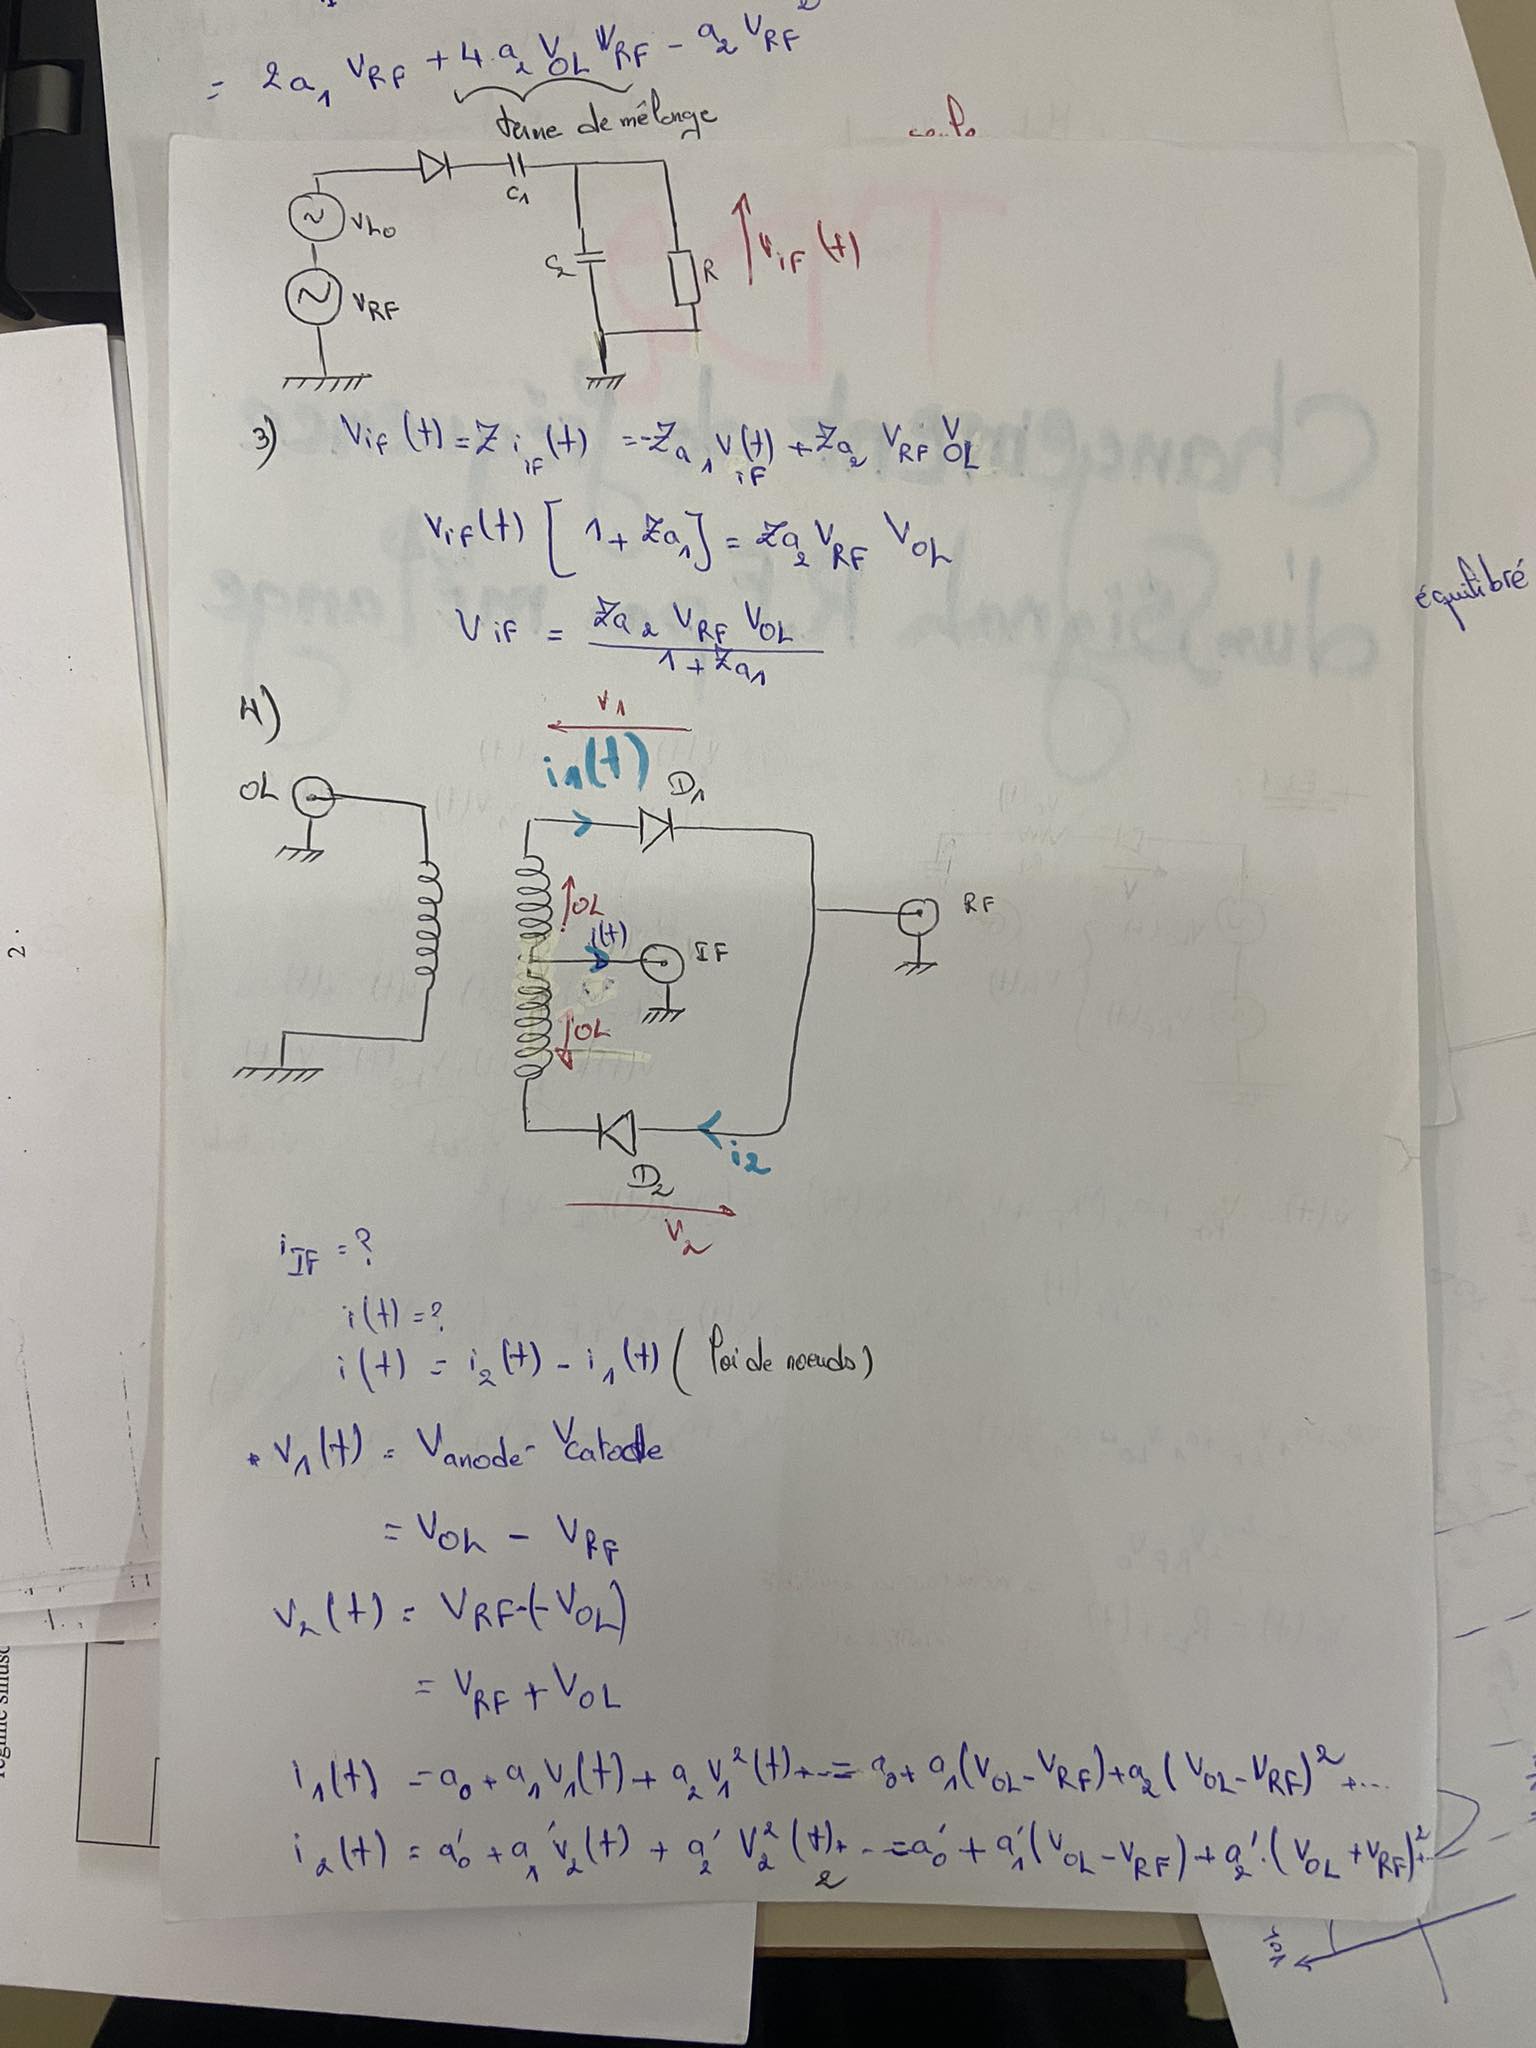 = 2a₁ V_RF + 4 a₂ V_OL V_RF - a₂ V_RF²
terme de mélange
C₁
V_LO
V_RF
C₂
R
V_iF (t)
3) V_iF (t) = Z i_iF (t) = -Za₁ V(t)_iF + Za₂ V_RF V_OL
V_iF (t) [ 1 + Za₁] = Za₂ V_RF V_OL
V_iF = Za₂ V_RF V_OL / 1 + Za₁
équilibré
4)
V₁
i₁(t)
D₁
OL
OL
i(t)
IF
RF
OL
i₂
D₂
V₂
i_IF = ?
i(t) = ?
i(t) = i₂(t) - i₁(t) ( loi de noeuds)
• V₁(t) = V_anode - V_catode
= V_OL - V_RF
V₂(t) = V_RF-(-V_OL)
= V_RF + V_OL
i₁(t) = a₀ + a₁ V₁(t) + a₂ V₁²(t)+... = a₀+ a₁(V_OL-V_RF)+a₂ (V_OL-V_RF)² +...
i₂(t) = a'₀ + a₁' V₂(t) + a₂' V₂²(t)+... = a₀' + a₁'(V_OL-V_RF) + a₂'.(V_OL+V_RF)²+...
2
2.